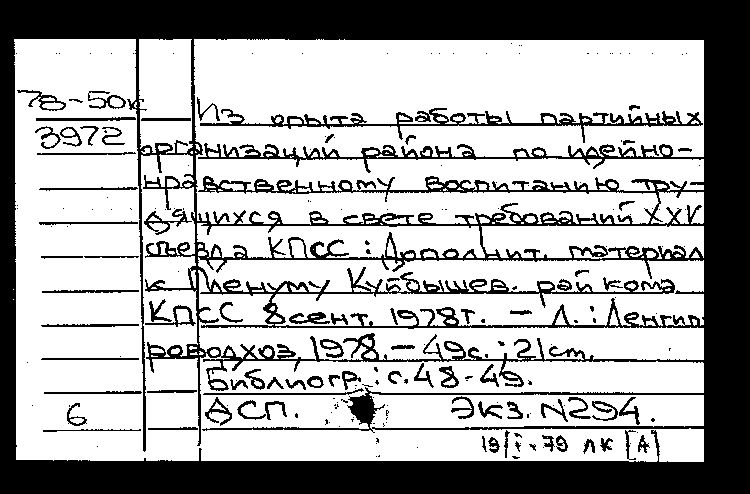 78-50к
3972
Из опыта работы партийных
организаций района по идейно-
нравственному воспитанию тру-
дящихся в свете требований XXV
съезда КПСС : Дополнит. материал
к Пленуму Куйбышев. райкома
КПСС 8 сент. 1978г. – Л. : Ленгип-
роводхоз, 1978. – 49с. ; 21 см.
Библиогр. : с. 48-49.
6 ДСП. Экз. N294.
19/I-79 ЛК [А]